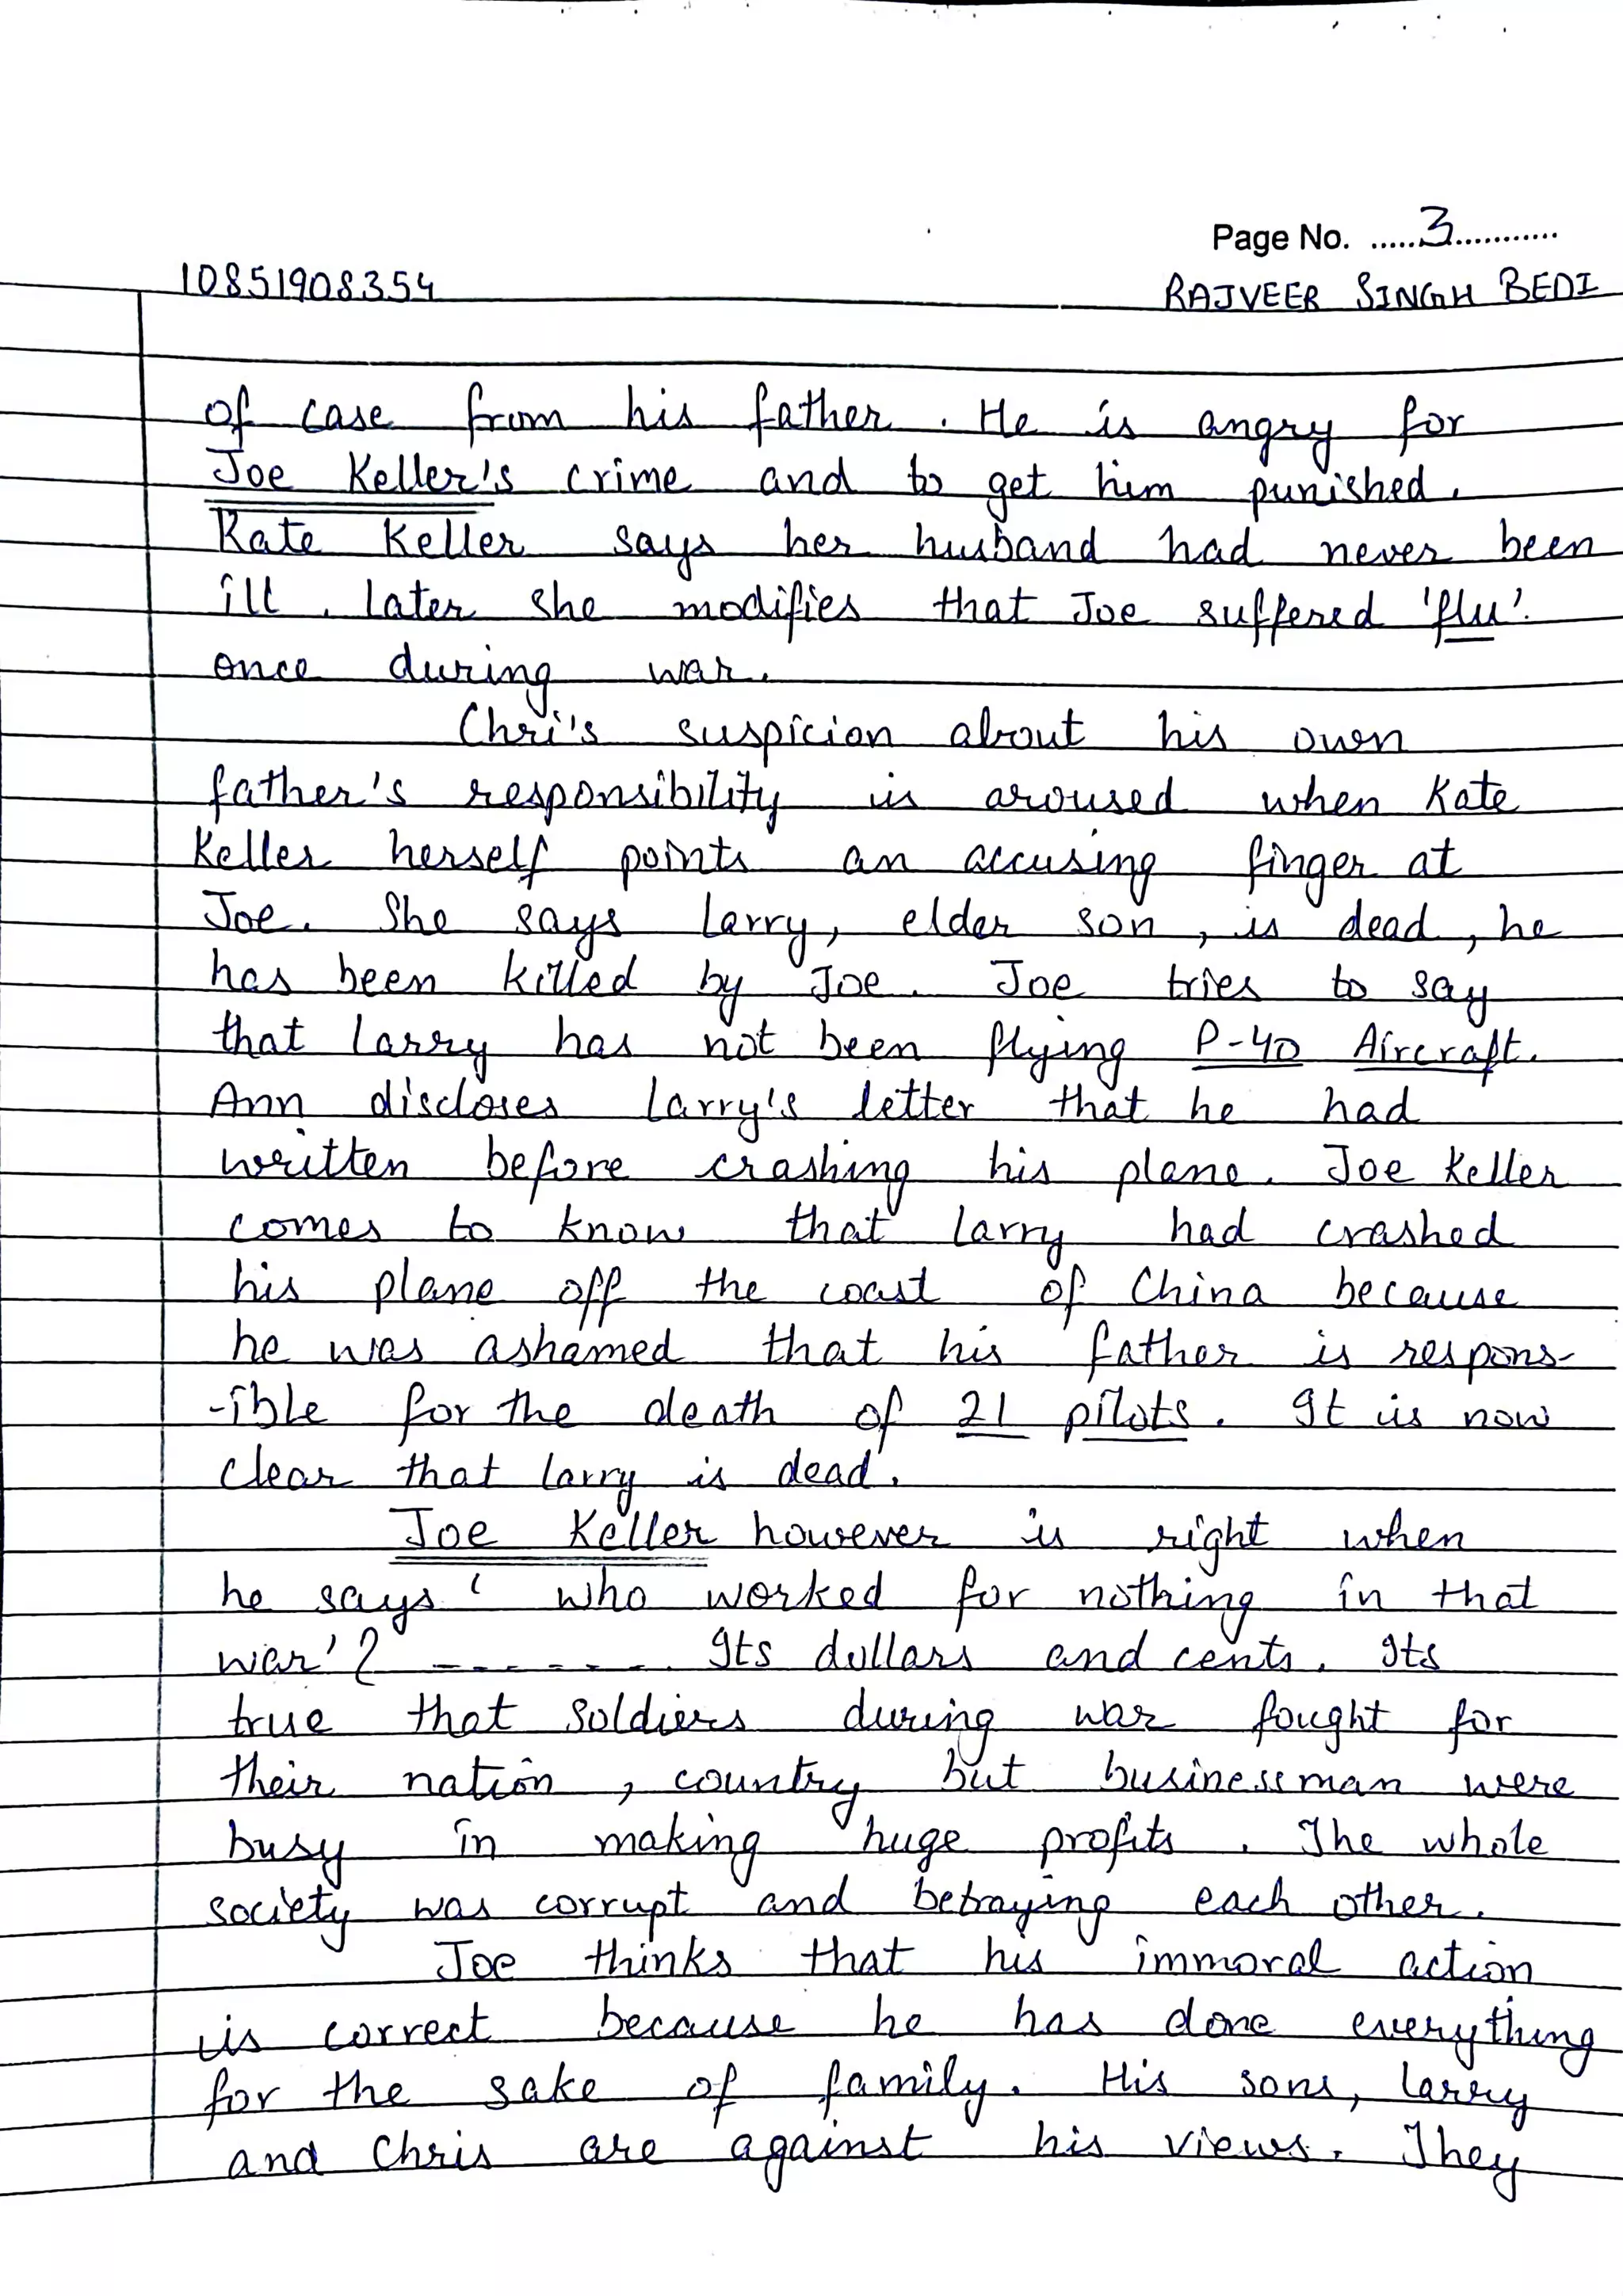 Page No. ......3............
10851908354 RAJVEER SINGH BEDI
of case from his father. He is angry for
Joe Keller's crime and to get him punished.
Kate Keller says her husband had never been
ill. Later she modifies that Joe suffered 'flu'.
once during war.
Chri's suspicion about his own
father's responsibility is aroused when Kate
Keller herself points an accusing finger at
Joe. She says Larry, elder son, is dead, he
has been killed by Joe. Joe tries to say
that Larry has not been flying P-40 Aircraft.
Ann discloses Larry's letter that he had
written before crashing his plane. Joe Keller
comes to know that Larry had crashed
his plane off the coast of China because
he was ashamed that his father is respons-
-ible for the death of 21 pilots. It is now
clear that Larry is dead.
Joe Keller however is right when
he says ' who worked for nothing in that
war'? - - - - - - -. Its dollars and cents. Its
true that soldiers during war fought for
their nation, country but businessman were
busy in making huge profits. The whole
society was corrupt and betraying each other.
Joe thinks that his immoral action
is correct because he has done everything
for the sake of family. His sons, Larry
and Chris are against his views. They